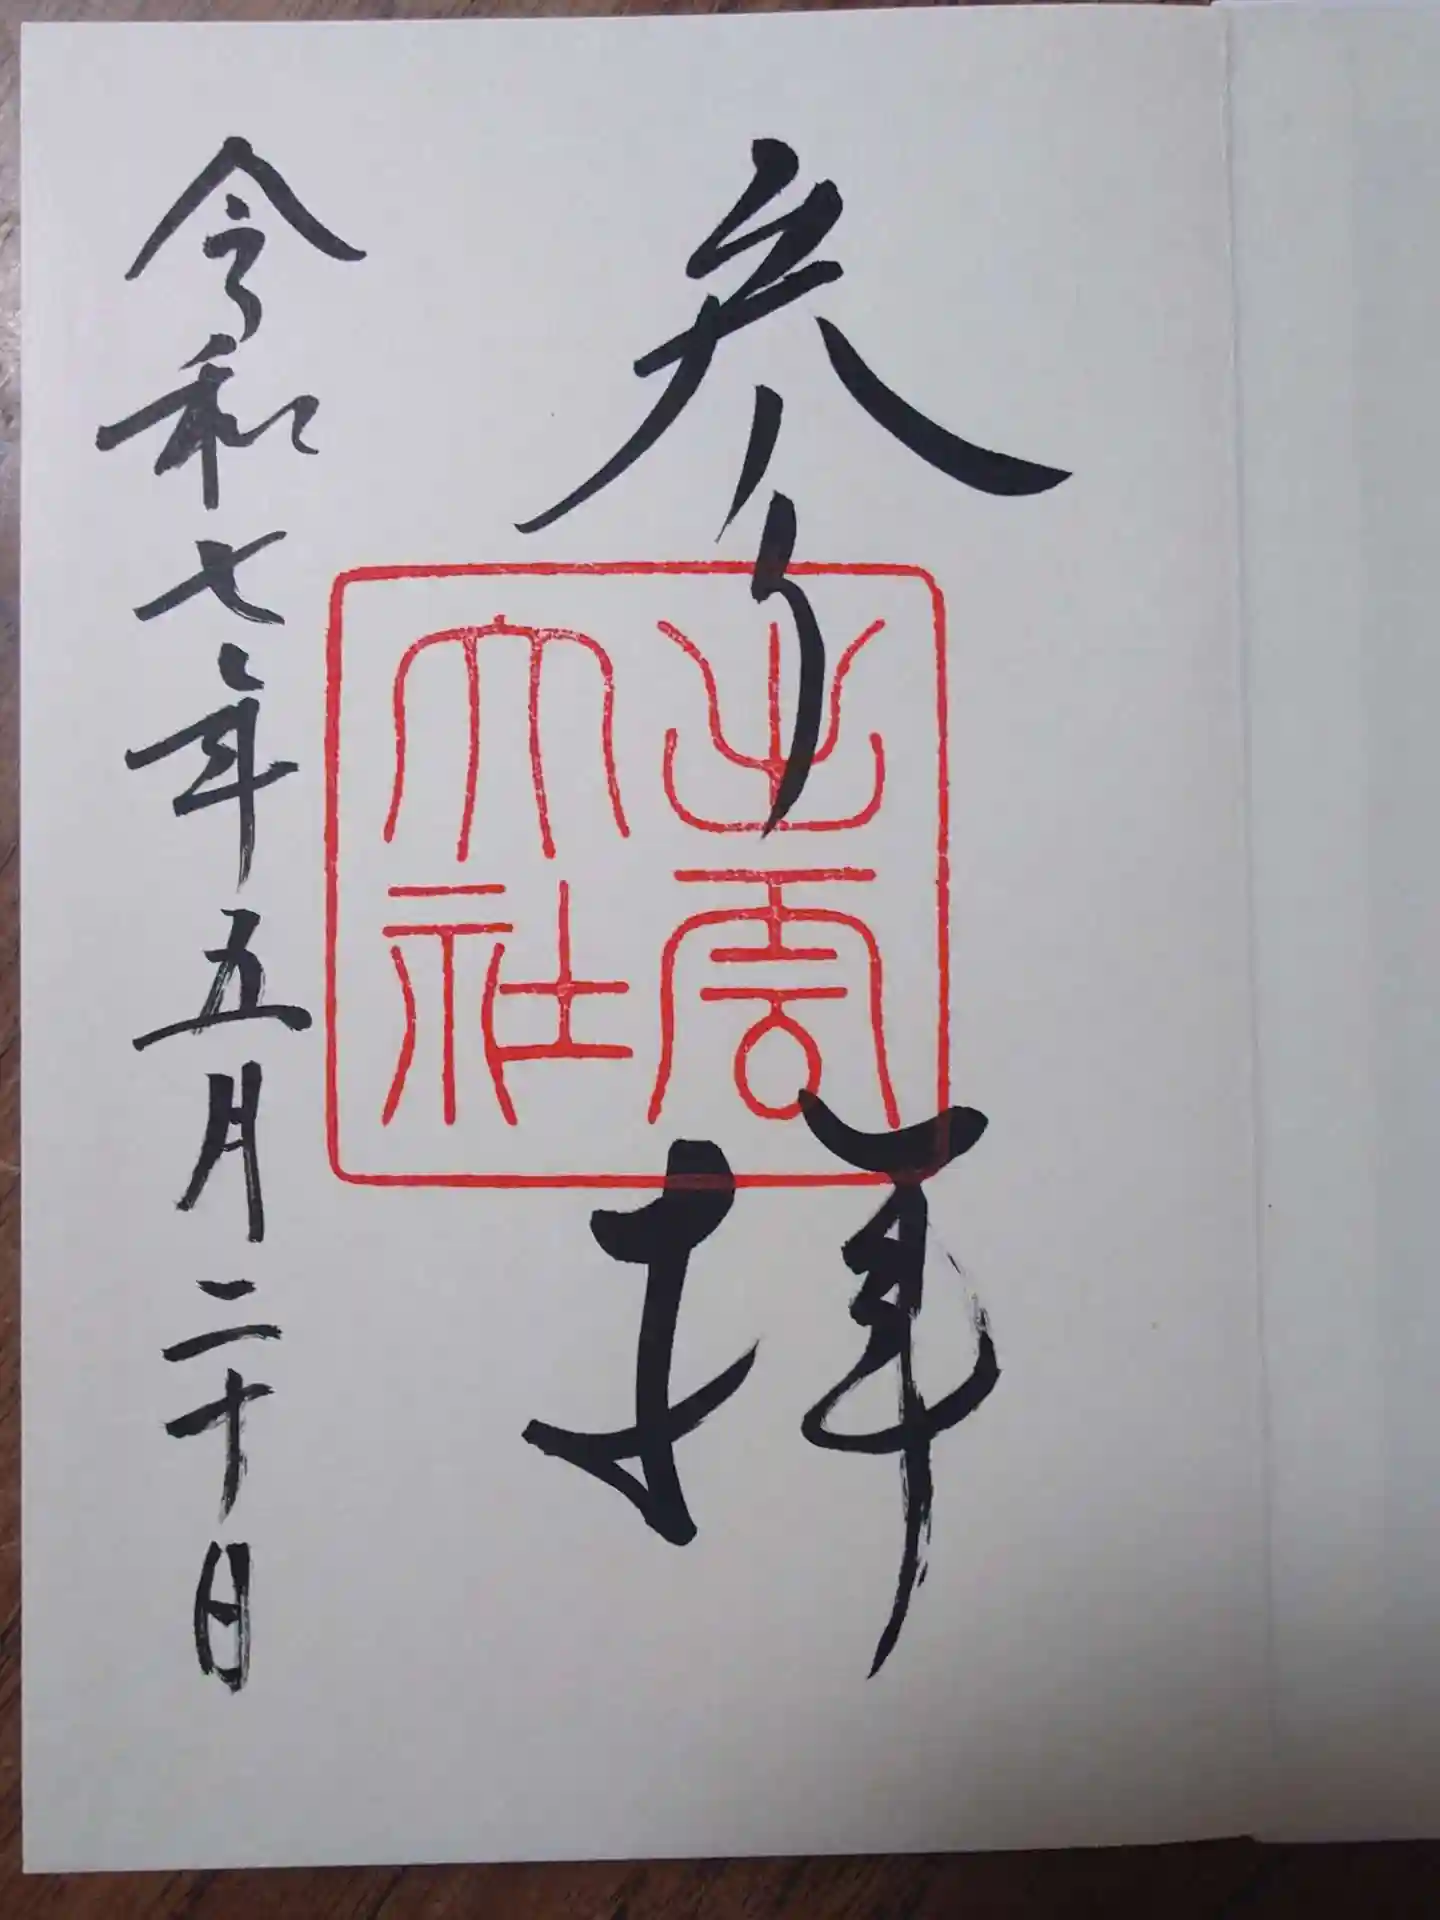 参拝
出雲大社
令和七年五月二十日